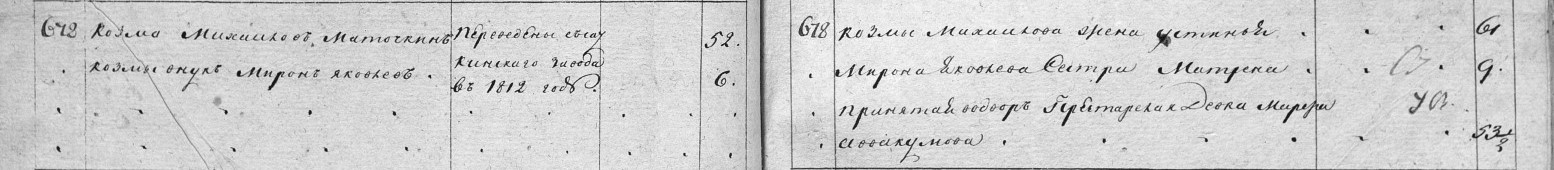 678 Козма Михаиловъ Маточкинъ Переведены съ 52.
Козмы внукъ Миронъ Яковлевъ. кинскаго завода 6.
въ 1812 годѣ.
678 Козмы Михаилова жена Устинья 61
Мирона Яковлева Сестра Матрена 9.
Принятая водворъ Девка Марфа
Аввакумова 53 1/2